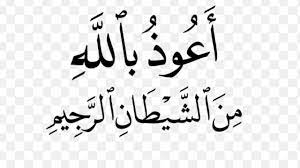 أَعُوذُ بِٱللَّهِ
مِنَ ٱلشَّيْطَانِ ٱلرَّجِيمِ